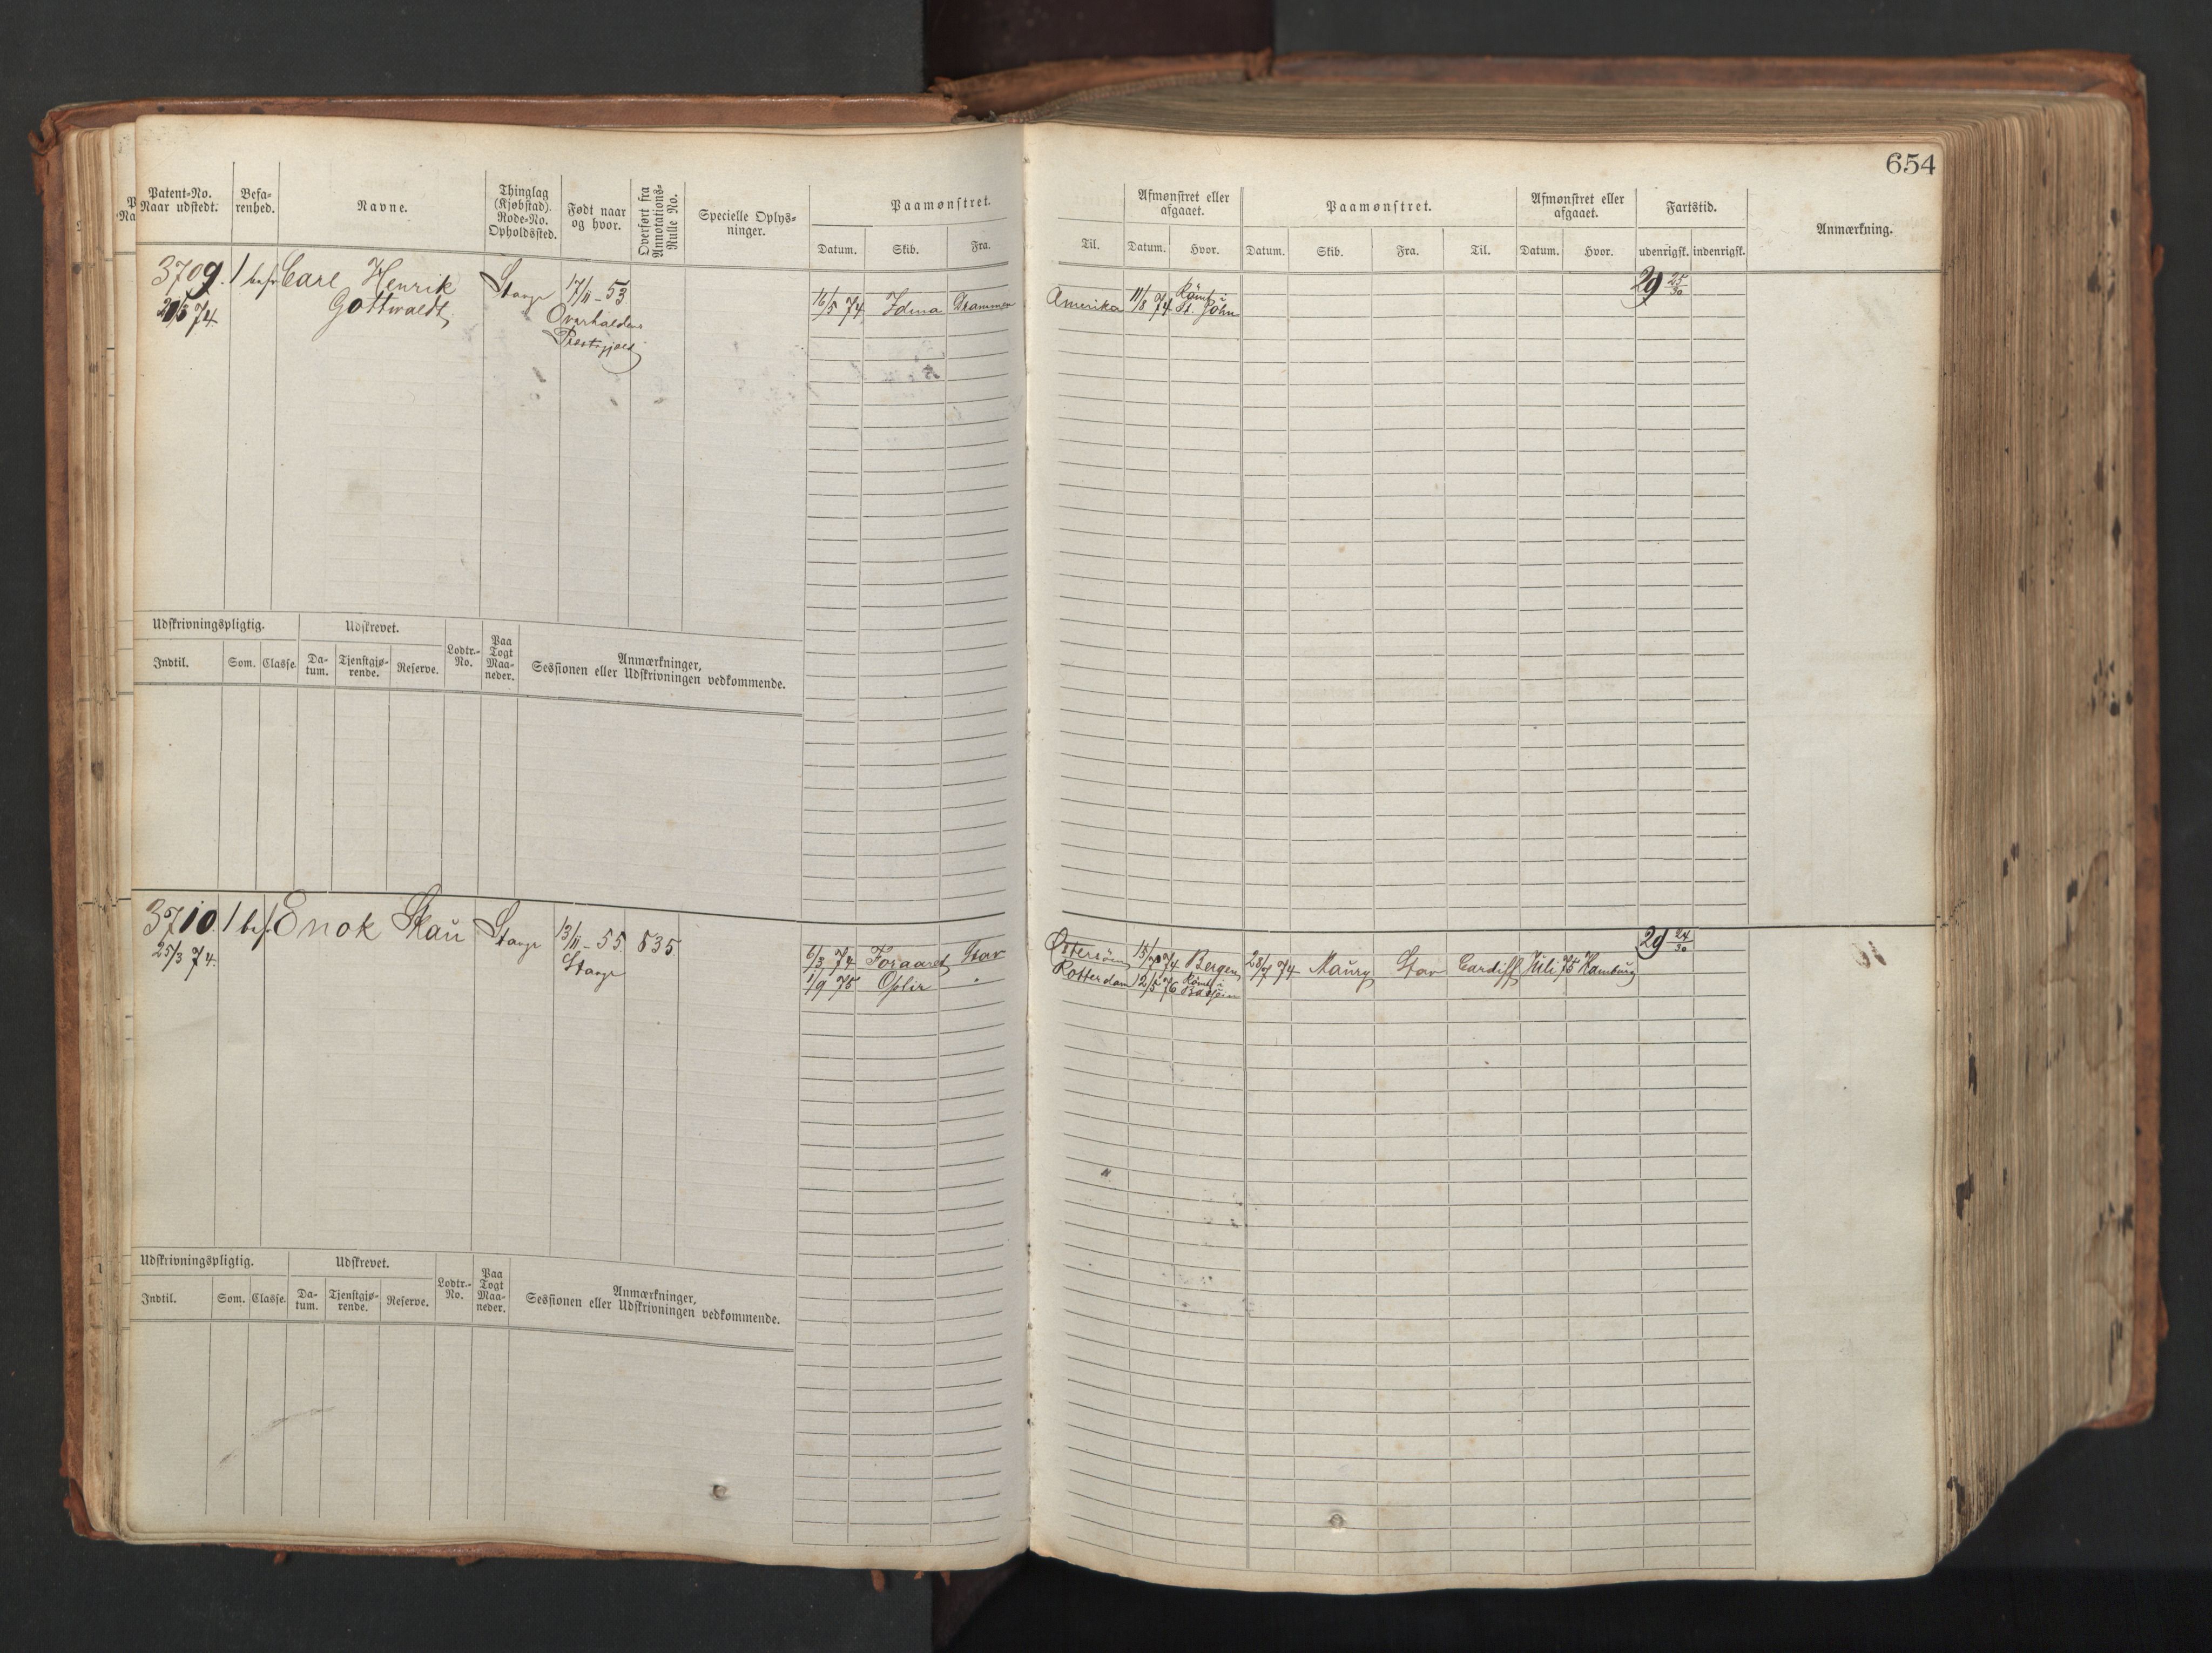 654
Patent-No.
Naar udstedt.
Befa-
renhed.
Navne.
Thinglag
(Kjøbstad).
Rode-No.
Opholdssted.
Født naar
og hvor.
Overført fra
Annotations-
Rulle No.
Specielle Oplys-
ninger.
Paamønstret.
Datum. Skib. Fra.
Til.
Afmønstret eller
afgaaet.
Datum. Hvor.
Paamønstret.
Datum. Skib. Fra. Til.
Afmønstret eller
afgaaet.
Datum. Hvor.
Fartstid.
udenrigsk. indenrigsk.
Anmærkning.
3709. 1 bef. Carl Henrik Stavgr 17/11-53
Gottwaldt
74
Overhaldens
Prestegjeld
16/5 74 Idma Drammen Amerika 11/8 74 Rømt i
St. John
29 25/30
Udskrivningspligtig. Udskrevet. Lodtr.-
No. Paa
Togt
Maa-
neder. Anmærkninger,
Sessionen eller Udskrivningen vedkommende.
Indtil. Som. Classe. Da-
tum. Tjenstgjø-
rende. Reserve.
3710. 1 bef. Enok Skau Stavgr 13/11-55. 535.
25/3 74. Stavgr
6/3 74 Foraaret Stav Østersøen 15/7 74 Bergen 28/7 74 Maury Stav Cardiff Juli 75 Hamburg
29 24/30
1/9 75 Ophir " Rotterdam 12/5 76 Rømt i
Bassein
"
Udskrivningspligtig. Udskrevet. Lodtr.-
No. Paa
Togt
Maa-
neder. Anmærkninger,
Sessionen eller Udskrivningen vedkommende.
Indtil. Som. Classe. Da-
tum. Tjenstgjø-
rende. Reserve.